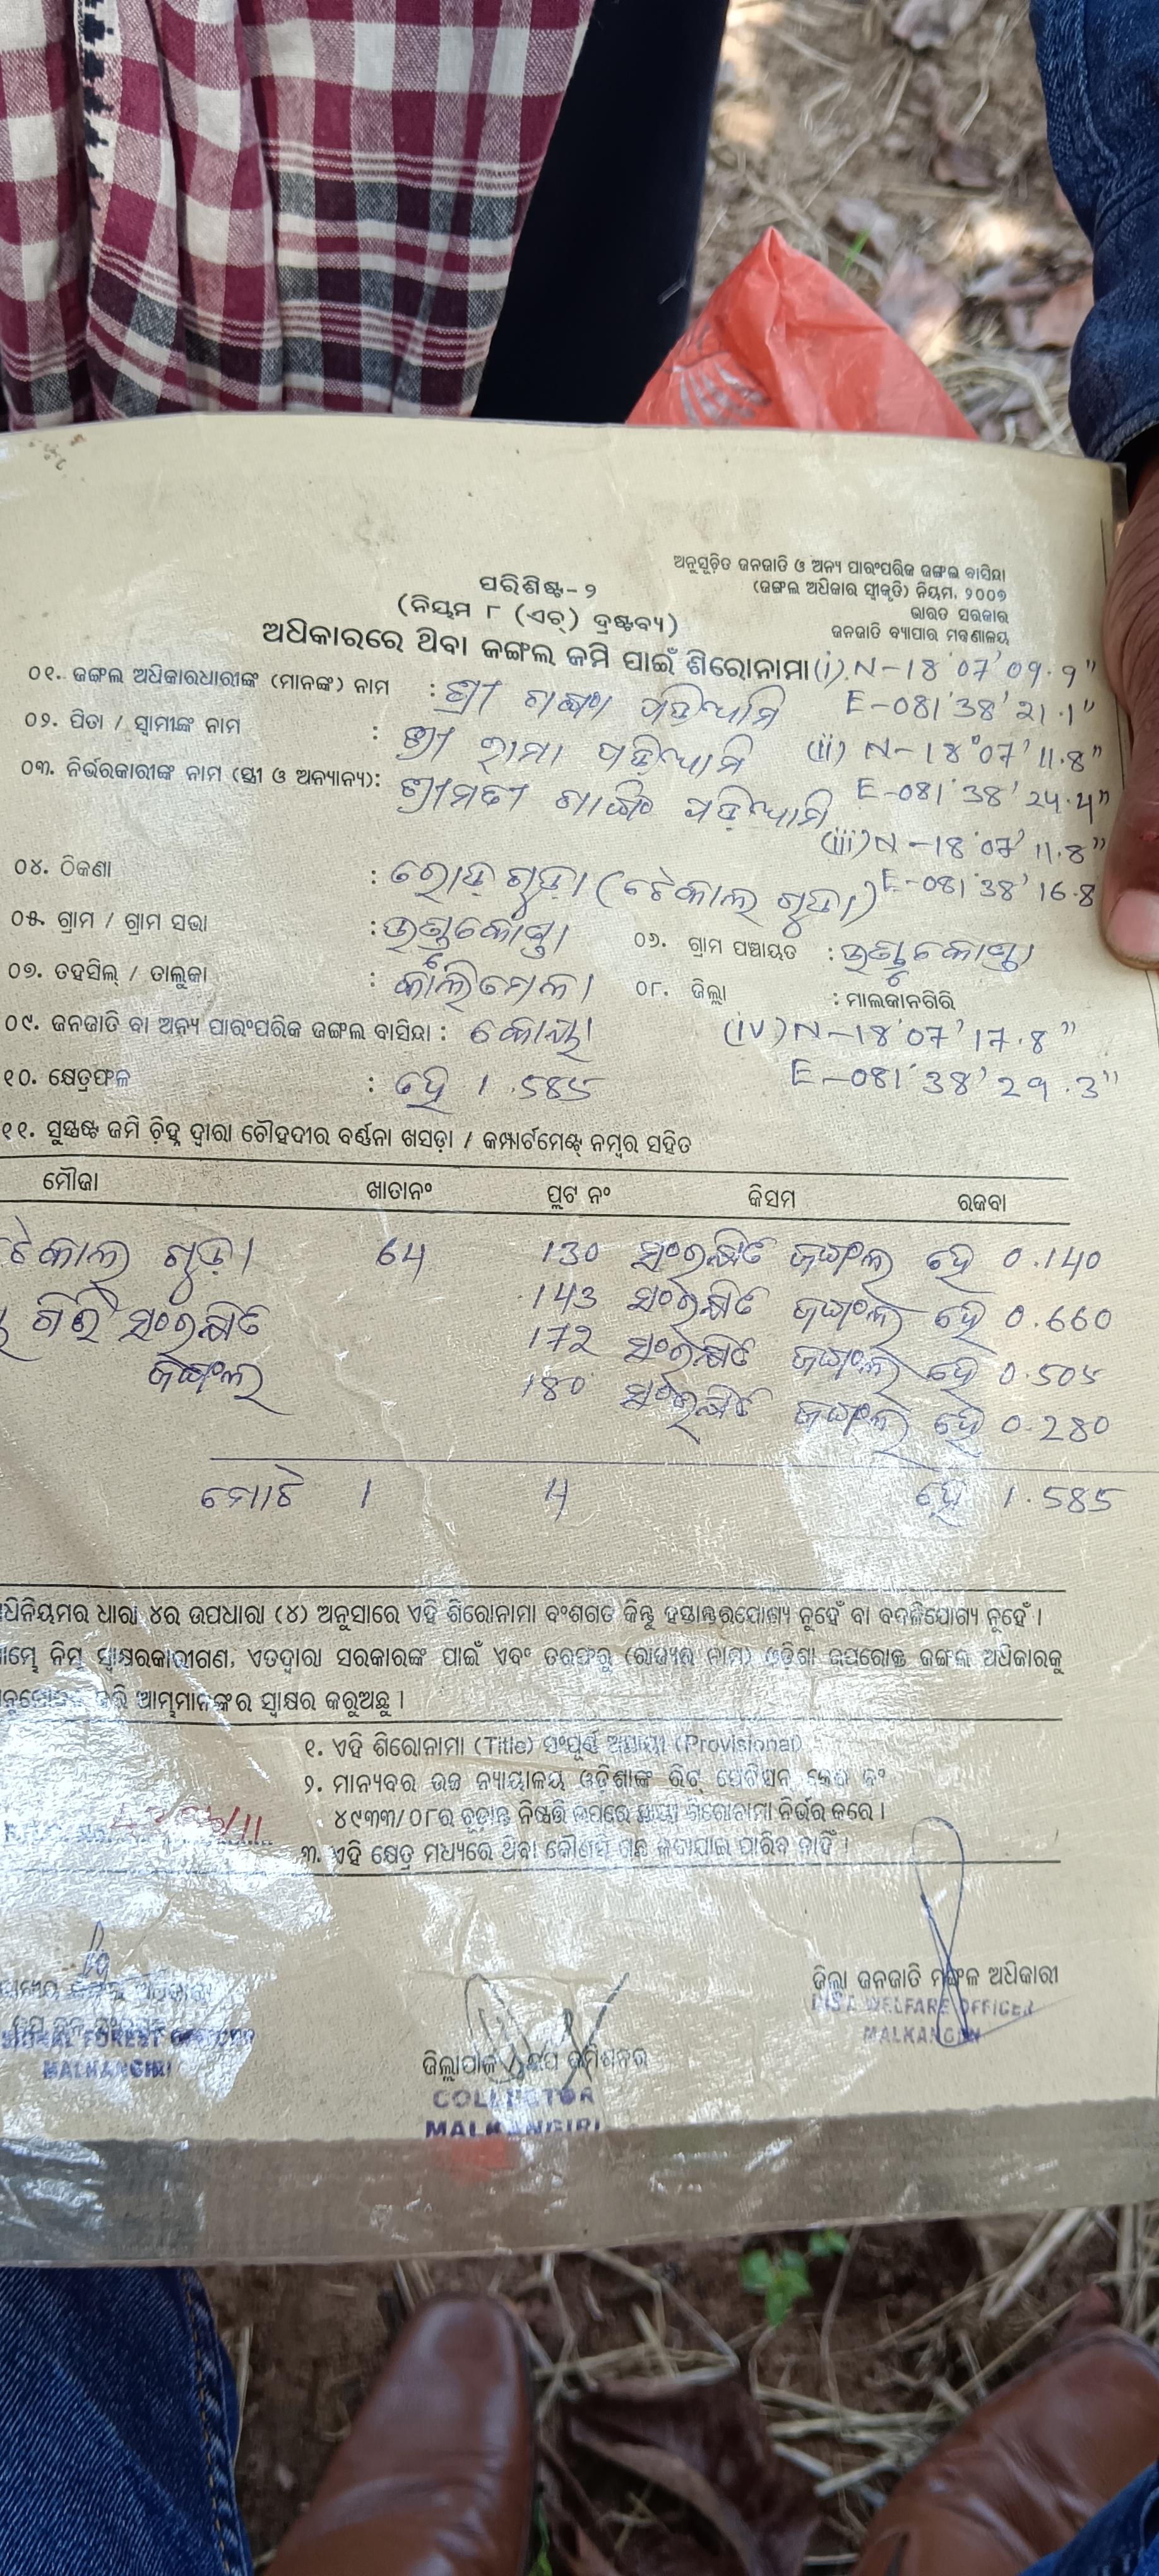 ଅନୁସୂଚିତ ଜନଜାତି ଓ ଅନ୍ୟ ପାରଂପରିକ ଜଙ୍ଗଲ ବାସିନ୍ଦା
(ଜଙ୍ଗଲ ଅଧିକାର ସ୍ୱୀକୃତି) ନିୟମ, ୨୦୦୭
ଭାରତ ସରକାର
ଜନଜାତି ବ୍ୟାପାର ମନ୍ତ୍ରଣାଳୟ
ପରିଶିଷ୍ଟ - ୨
(ନିୟମ ୮ (ଏଚ୍) ଦ୍ରଷ୍ଟବ୍ୟ)
ଅଧିକାରରେ ଥିବା ଜଙ୍ଗଲ ଜମି ପାଇଁ ଶିରୋନାମା (i) N-18°07'09.9"
E-081°38'21.1"
୦୧. ଜଙ୍ଗଲ ଅଧିକାରଧାରୀଙ୍କ (ମାନଙ୍କ) ନାମ : ଶ୍ରୀ ପଡ଼ିଆମି
୦୨. ପିତା / ସ୍ୱାମୀଙ୍କ ନାମ : ଶ୍ରୀ ରାମା ପଡ଼ିଆମି (ii) N-18°07'11.8"
E-081°38'24.4"
୦୩. ନିର୍ଭରକାରୀଙ୍କ ନାମ (ସ୍ତ୍ରୀ ଓ ଅନ୍ୟାନ୍ୟ) : ଶ୍ରୀମତୀ ପଡ଼ିଆମି
(iii) N-18°07'11.8"
E-081°38'16.8
୦୪. ଠିକଣା : ରୋଡ଼ ଗୁଡ଼ା (ଟେକାଲ ଗୁଡା)
୦୫. ଗ୍ରାମ / ଗ୍ରାମ ସଭା :
୦୬. ଗ୍ରାମ ପଞ୍ଚାୟତ :
୦୭. ତହସିଲ୍ / ତାଲୁକା : କାଲିମେଳା
୦୮. ଜିଲ୍ଲା : ମାଲକାନଗିରି
୦୯. ଜନଜାତି ବା ଅନ୍ୟ ପାରଂପରିକ ଜଙ୍ଗଲ ବାସିନ୍ଦା : କୋୟା (iv) N-18°07'17.8"
E-081°38'29.3"
୧୦. କ୍ଷେତ୍ରଫଳ : ହେ 1.585
୧୧. ସୁସ୍ପଷ୍ଟ ଜମି ଚିହ୍ନ ଦ୍ୱାରା ଚୌହଦୀର ବର୍ଣ୍ଣନା ଖସଡ଼ା / କମ୍ପାର୍ଟମେଣ୍ଟ୍ ନମ୍ବର ସହିତ
ମୌଜା ଖାତାନଂ ପ୍ଲଟ ନଂ କିସମ ରକବା
ଟେକାଲ ଗୁଡ଼ା 64 130 ସଂରକ୍ଷିତ ଜଙ୍ଗଲ ହେ 0.140
ଗିରି ସଂରକ୍ଷିତ 143 ସଂରକ୍ଷିତ ଜଙ୍ଗଲ ହେ 0.660
ଜଙ୍ଗଲ 172 ସଂରକ୍ଷିତ ଜଙ୍ଗଲ ହେ 0.505
180 ସଂରକ୍ଷିତ ଜଙ୍ଗଲ ହେ 0.280
ମୋଟ 1 4 ହେ 1.585
ଧିନିୟମର ଧାରା ୪ର ଉପଧାରା (୪) ଅନୁସାରେ ଏହି ଶିରୋନାମା ବଂଶଗତ କିନ୍ତୁ ହସ୍ତାନ୍ତରଯୋଗ୍ୟ ନୁହେଁ ବା ବଦଳିଯୋଗ୍ୟ ନୁହେଁ ।
ନିମ୍ନ ସ୍ୱାକ୍ଷରକାରୀଗଣ, ଏତଦ୍ୱାରା ସରକାରଙ୍କ ପାଇଁ ଏବଂ ତରଫରୁ (ରାଜ୍ୟର ନାମ) ଓଡ଼ିଶା ଉପରୋକ୍ତ ଜଙ୍ଗଲ ଅଧିକାରକୁ
ଆମ୍ଭମାନଙ୍କର ସ୍ୱାକ୍ଷର କରୁଅଛୁ ।
୧. ଏହି ଶିରୋନାମା (Title) ସଂପୂର୍ଣ୍ଣ ଅସ୍ଥାୟୀ (Provisional)
୨. ମାନ୍ୟବର ଉଚ୍ଚ ନ୍ୟାୟାଳୟ ଓଡ଼ିଶାଙ୍କ ରିଟ୍ ପେଟିସନ୍ କେଶ ନଂ
୪୯୩୩/୦୮ର ଚୂଡ଼ାନ୍ତ ନିଷ୍ପତ୍ତି ଉପରେ ସ୍ଥାୟୀ ଶିରୋନାମା ନିର୍ଭର କରେ ।
୩. ଏହି କ୍ଷେତ୍ର ମଧ୍ୟରେ ଥିବା କୌଣସି ଗଛ କଟାଯାଇ ପାରିବ ନାହିଁ ।
ଜିଲ୍ଲା ଜନଜାତି ମଙ୍ଗଳ ଅଧିକାରୀ
WELFARE OFFICER
MALKANGIRI
FOREST
MALKANGIRI
ଜିଲ୍ଲାପାଳ
COLLECTOR
MALKANGIRI